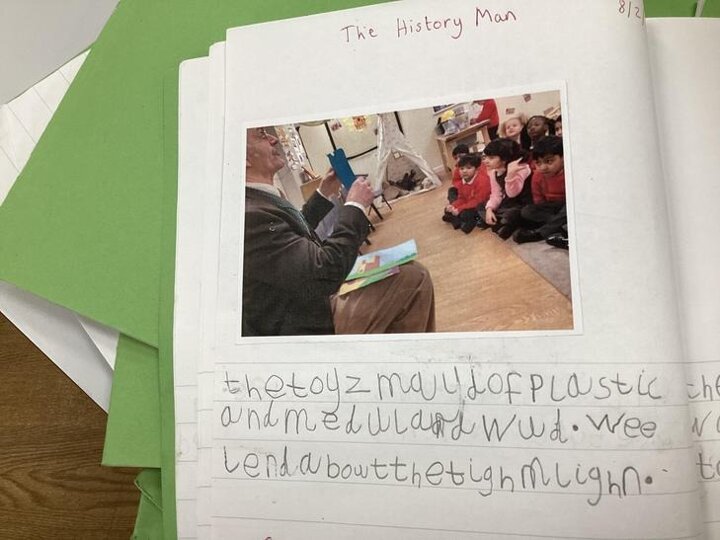 The History Man
8/2
thetoyz mayd of plastic
and medul and wud. wee
lendabowtthetighmlighn.
the
to